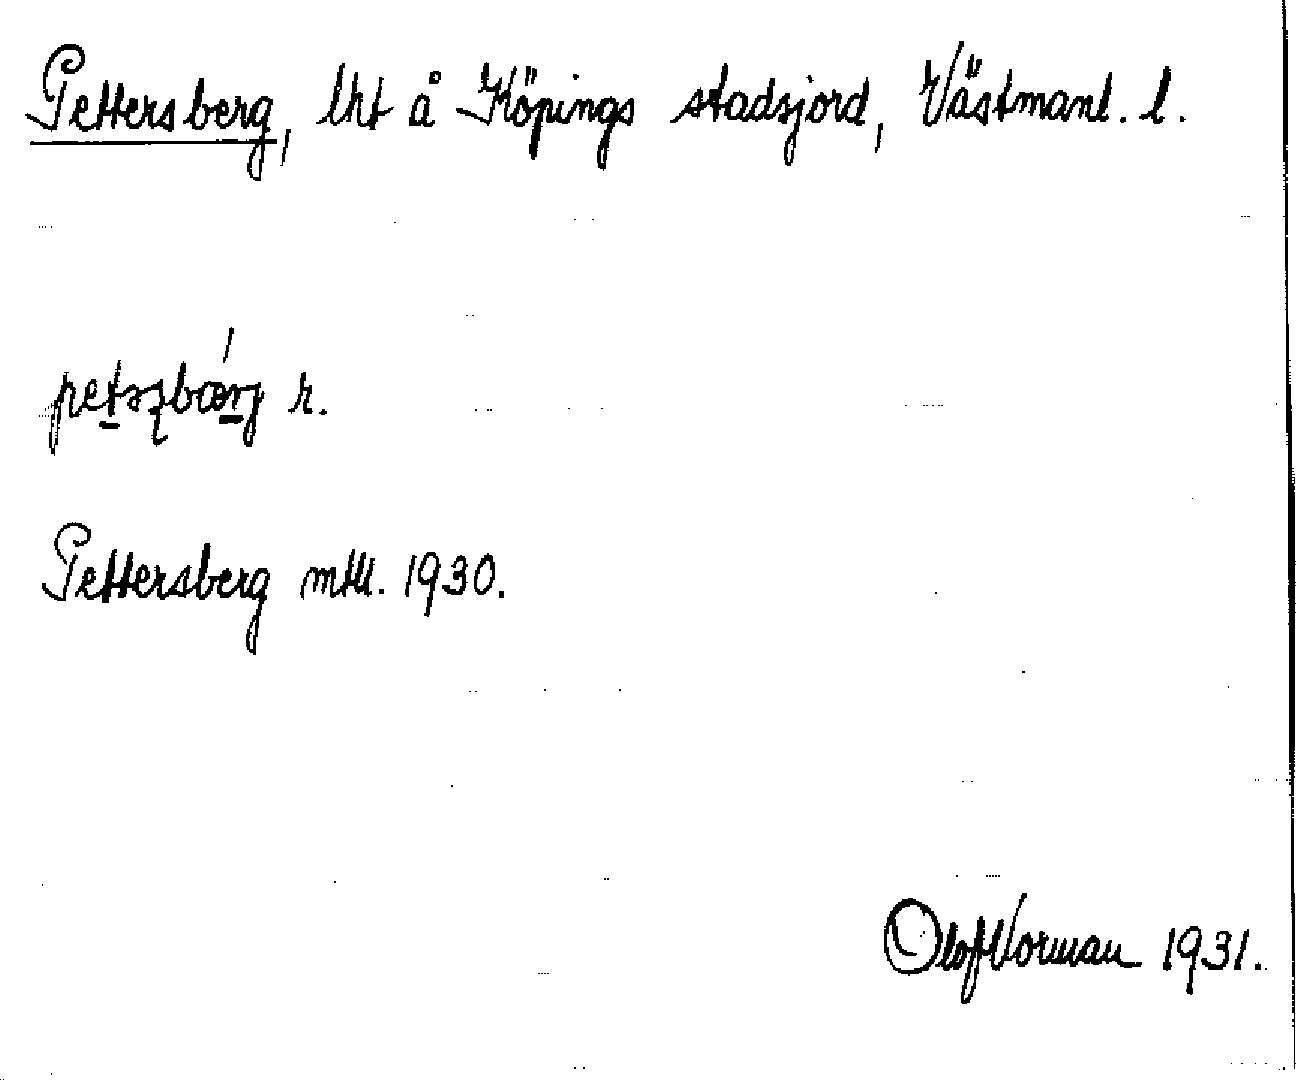 Pettersberg, lht å Köpings stadsjord, Västmanl. l.
r.
Pettersberg mtl. 1930.
Olof Vorman 1931.